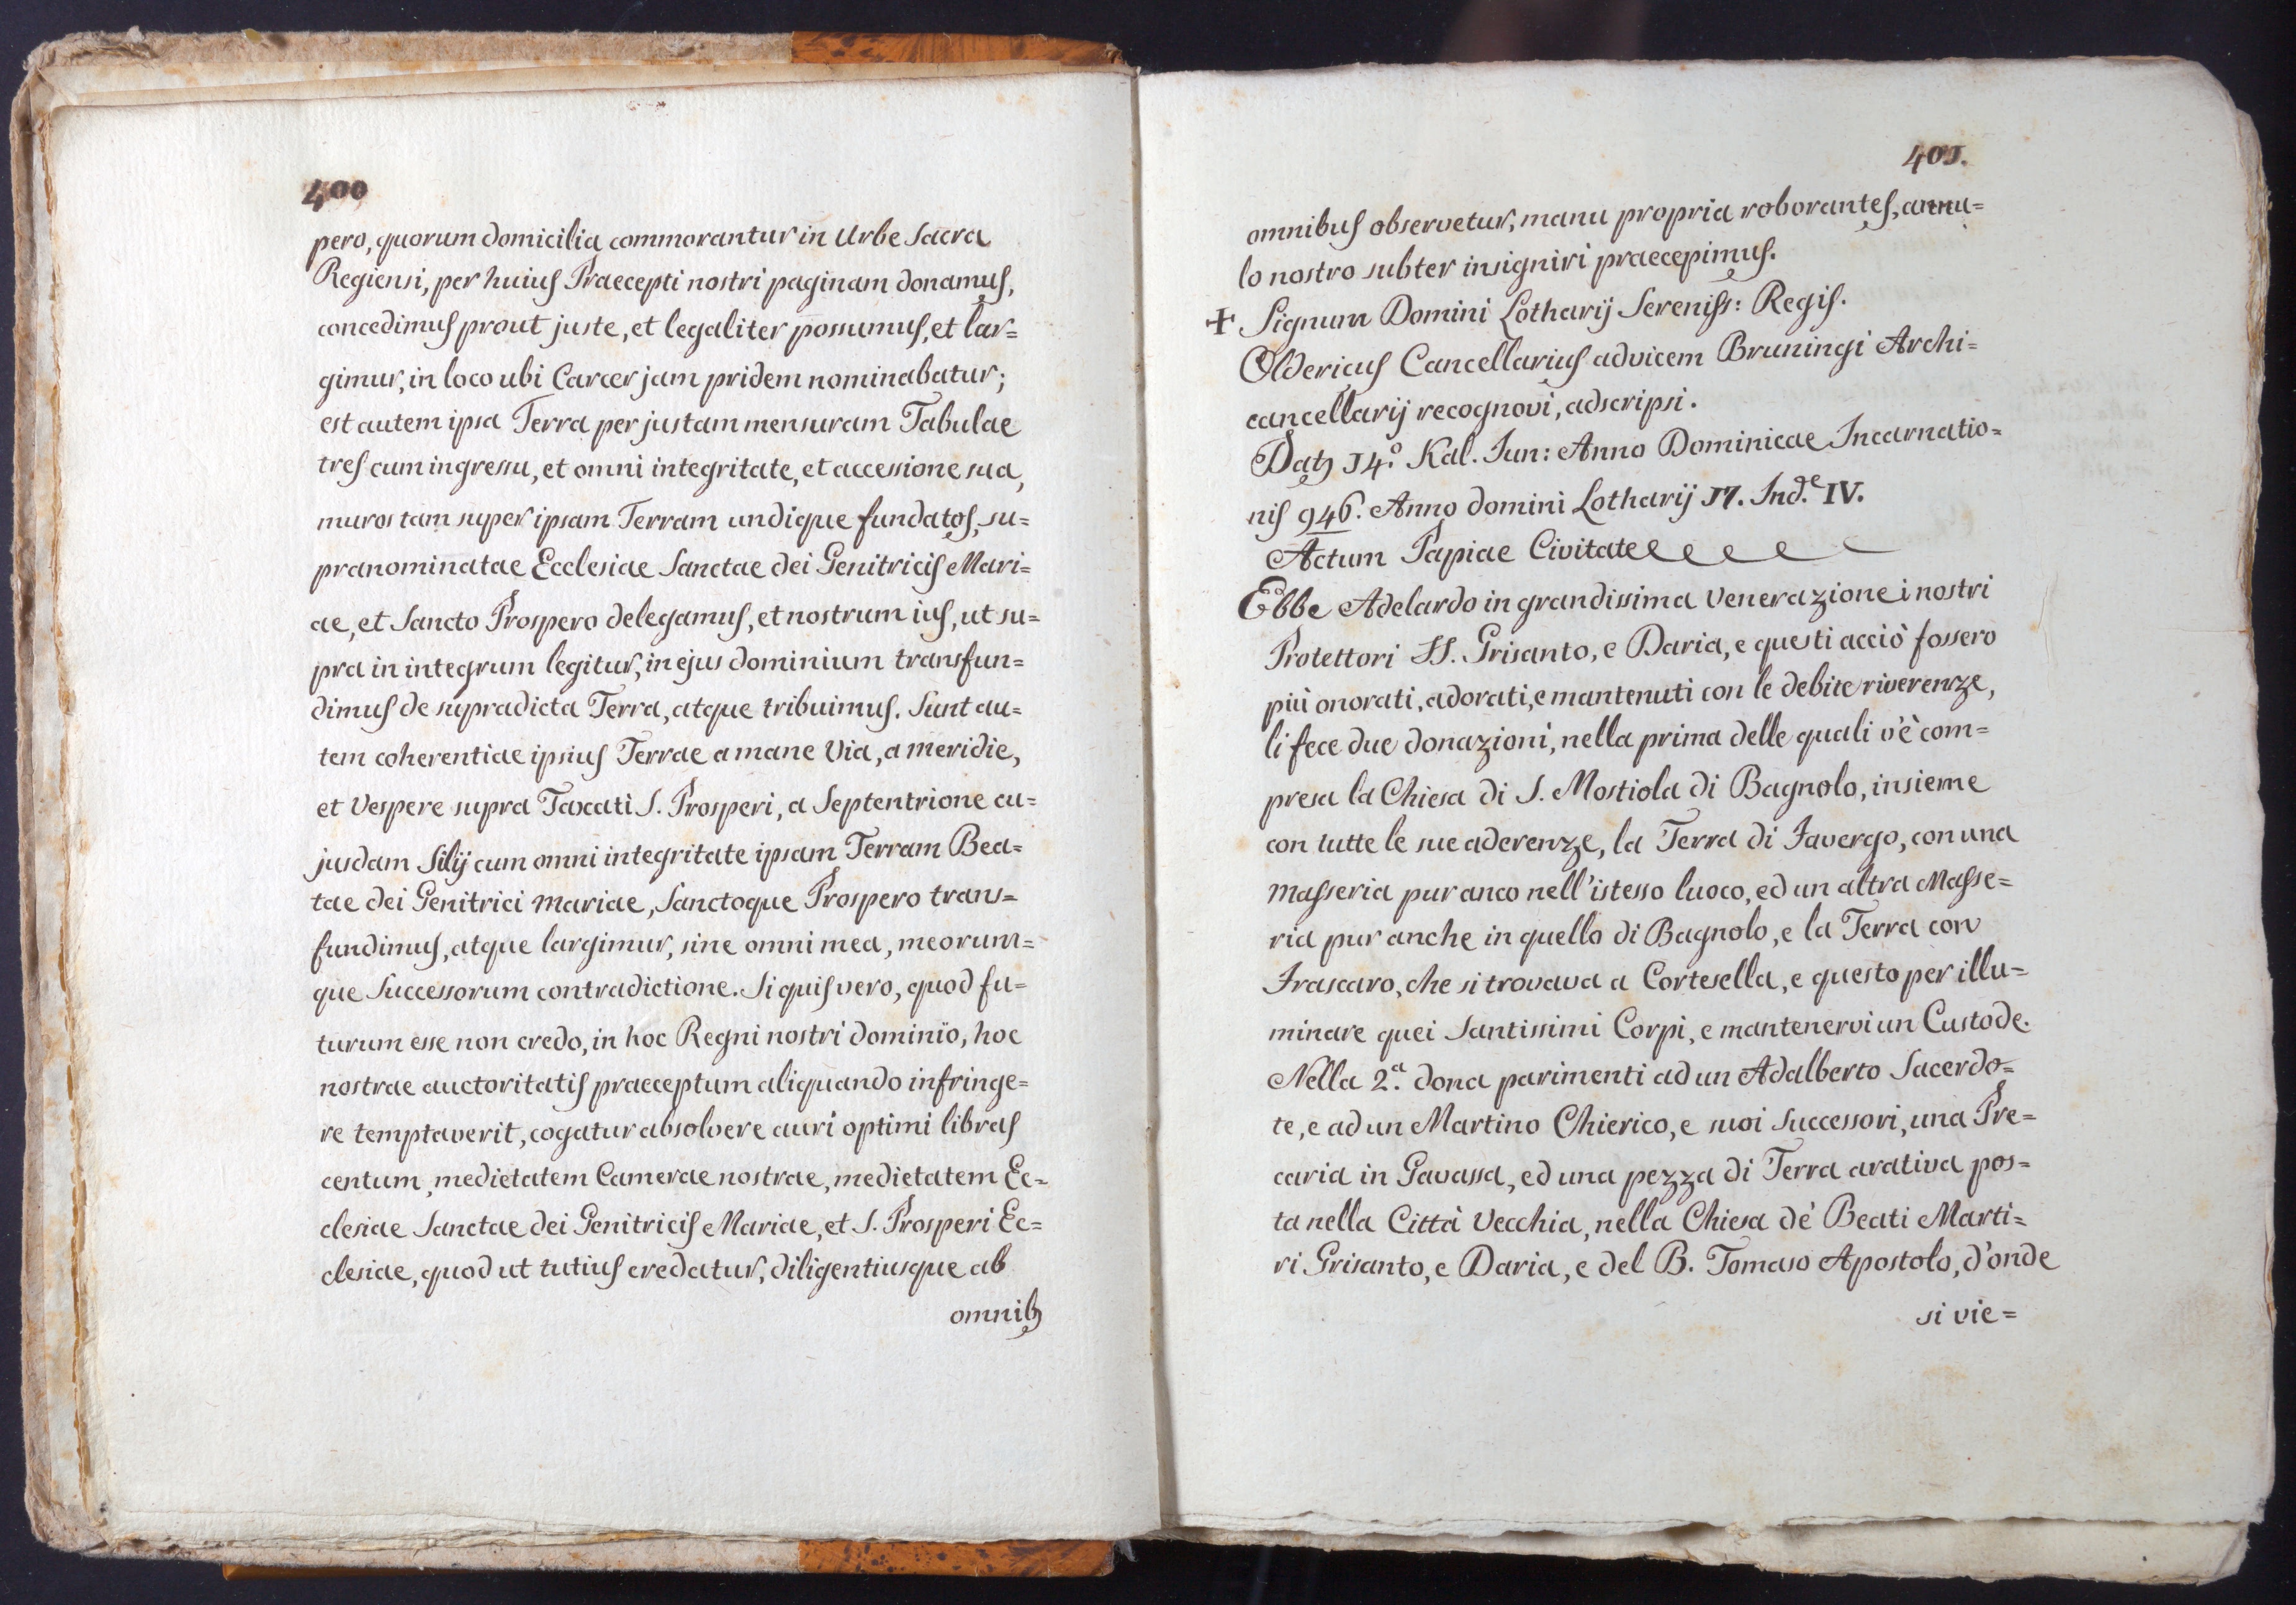 400
pero, quorum domicilia commorantur in Urbe Sacra
Regiensi, per huius Praecepti nostri paginam donamus,
concedimus prout juste, et legaliter possumus, et lar=
gimur, in loco ubi Carcer jam pridem nominabatur;
est autem ipsa Terra per justam mensuram Tabulae
tres cum ingressu, et omni integritate, et accessione sua,
muros tam super ipsam Terram undique fundatos, su=
pranominatae Ecclesiae Sanctae dei Genitricis Mari=
ae, et Sancto Prospero delegamus, et nostrum ius, ut su=
pra in integrum legitur, in ejus dominium transfun=
dimus de supradicta Terra, atque tribuimus. Sunt au=
tem coherentiae ipsius Terrae a mane Via, a meridie,
et Vespere supra Taxati S. Prosperi, a Septentrione cu=
jusdam Silij cum omni integritate ipsam Terram Bea=
tae dei Genitrici Mariae, Sanctoque Prospero trans=
fundimus, atque largimur, sine omni mea, meorum=
que Successorum contradictione. Si quis vero, quod fu=
turum esse non credo, in hoc Regni nostri dominio, hoc
nostrae auctoritatis praeceptum aliquando infringe=
re temptaverit, cogatur absolvere auri optimi libras
centum, medietatem Camerae nostrae, medietatem Ec=
clesiae Sanctae dei Genitricis Mariae, et S. Prosperi Ec=
clesiae, quod ut tutius credatur, diligentiusque ab
omnib9
401.
omnibus observetur, manu propria roborantes, annu=
lo nostro subter insigniri praecepimus.
+ Signum Domini Lotharij Sereniss: Regis.
Oldericus Cancellarius ad vicem Bruningi Archi=
cancellarij recognovi, adscripsi.
Dat9 14.° Kal. Iun: Anno Dominicae Incarnatio=
nis 946. Anno domini Lotharij 17. Ind.e IV.
Actum Papiae Civitate
Ebbe Adelardo in grandissima venerazione i nostri
Protettori SS. Grisanto, e Daria, e questi acciò fossero
più onorati, adorati, e mantenuti con le debite riverenze,
li fece due donazioni, nella prima delle quali v'è com=
presa la Chiesa di S. Mostiola di Bagnolo, insieme
con tutte le sue aderenze, la Terra di Favergo, con una
Masseria pur anco nell'istesso luoco, ed un altra Masse=
ria pur anche in quello di Bagnolo, e la Terra con
Frascaro, che si trovava a Cortesella, e questo per illu=
minare quei Santissimi Corpi, e mantenervi un Custode.
Nella 2.a dona parimenti ad un Adalberto Sacerdo=
te, e ad un Martino Chierico, e suoi Successori, una Pre=
caria in Gavassa, ed una pezza di Terra arativa pos=
ta nella Città Vecchia, nella Chiesa de' Beati Marti=
ri Grisanto, e Daria, e del B. Tomaso Apostolo, d'onde
si vie=